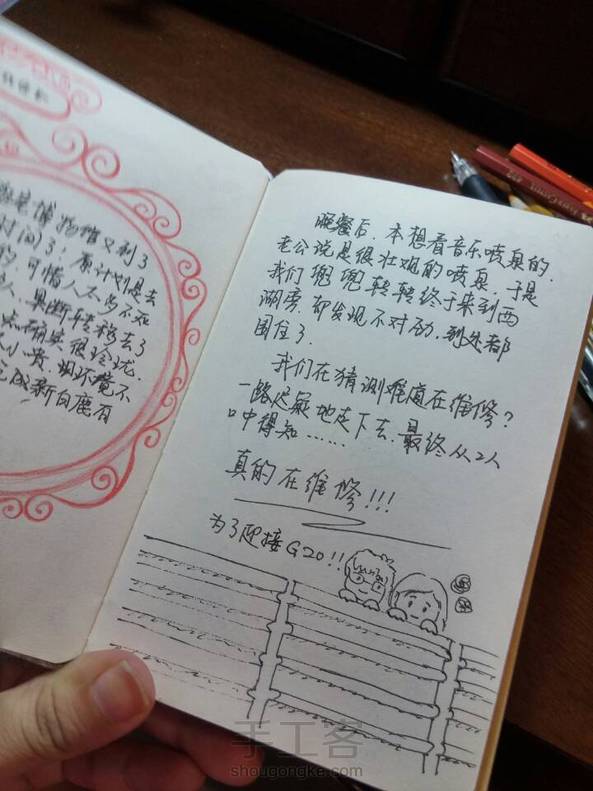 博物馆又到了
时间了；原计划是去
的，可惜人太多不知
果断转移去了
确实很玲珑．
小贵．烟环境不
新白鹿有
晚餐后．本想看音乐喷泉的．
老公说是很壮观的喷泉．于是
我们兜兜转转终于来到西
湖旁．却发现不对劲．到处都
围住了．
我们在猜测难道在维修？
一路迟疑地走下去．最终从2人
口中得知……
真的在维修!!!
为了迎接G20!!
手工客
shougongke.com